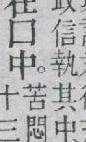 信執其中
在口中。
苦悶
十三